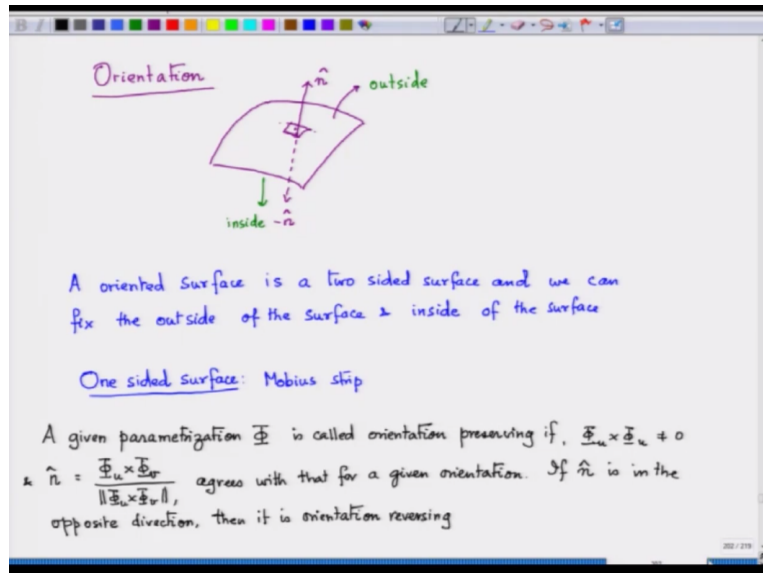 Orientation
n̂
outside
inside -n̂
A oriented surface is a two sided surface and we can
fix the outside of the surface & inside of the surface
One sided surface: Mobius strip
A given parametrization Φ is called orientation preserving if, Φ_u × Φ_u ≠ 0
& n̂ = Φ_u × Φ_v / ||Φ_u × Φ_v||, agrees with that for a given orientation. If n̂ is in the
opposite direction, then it is orientation reversing
202 / 219